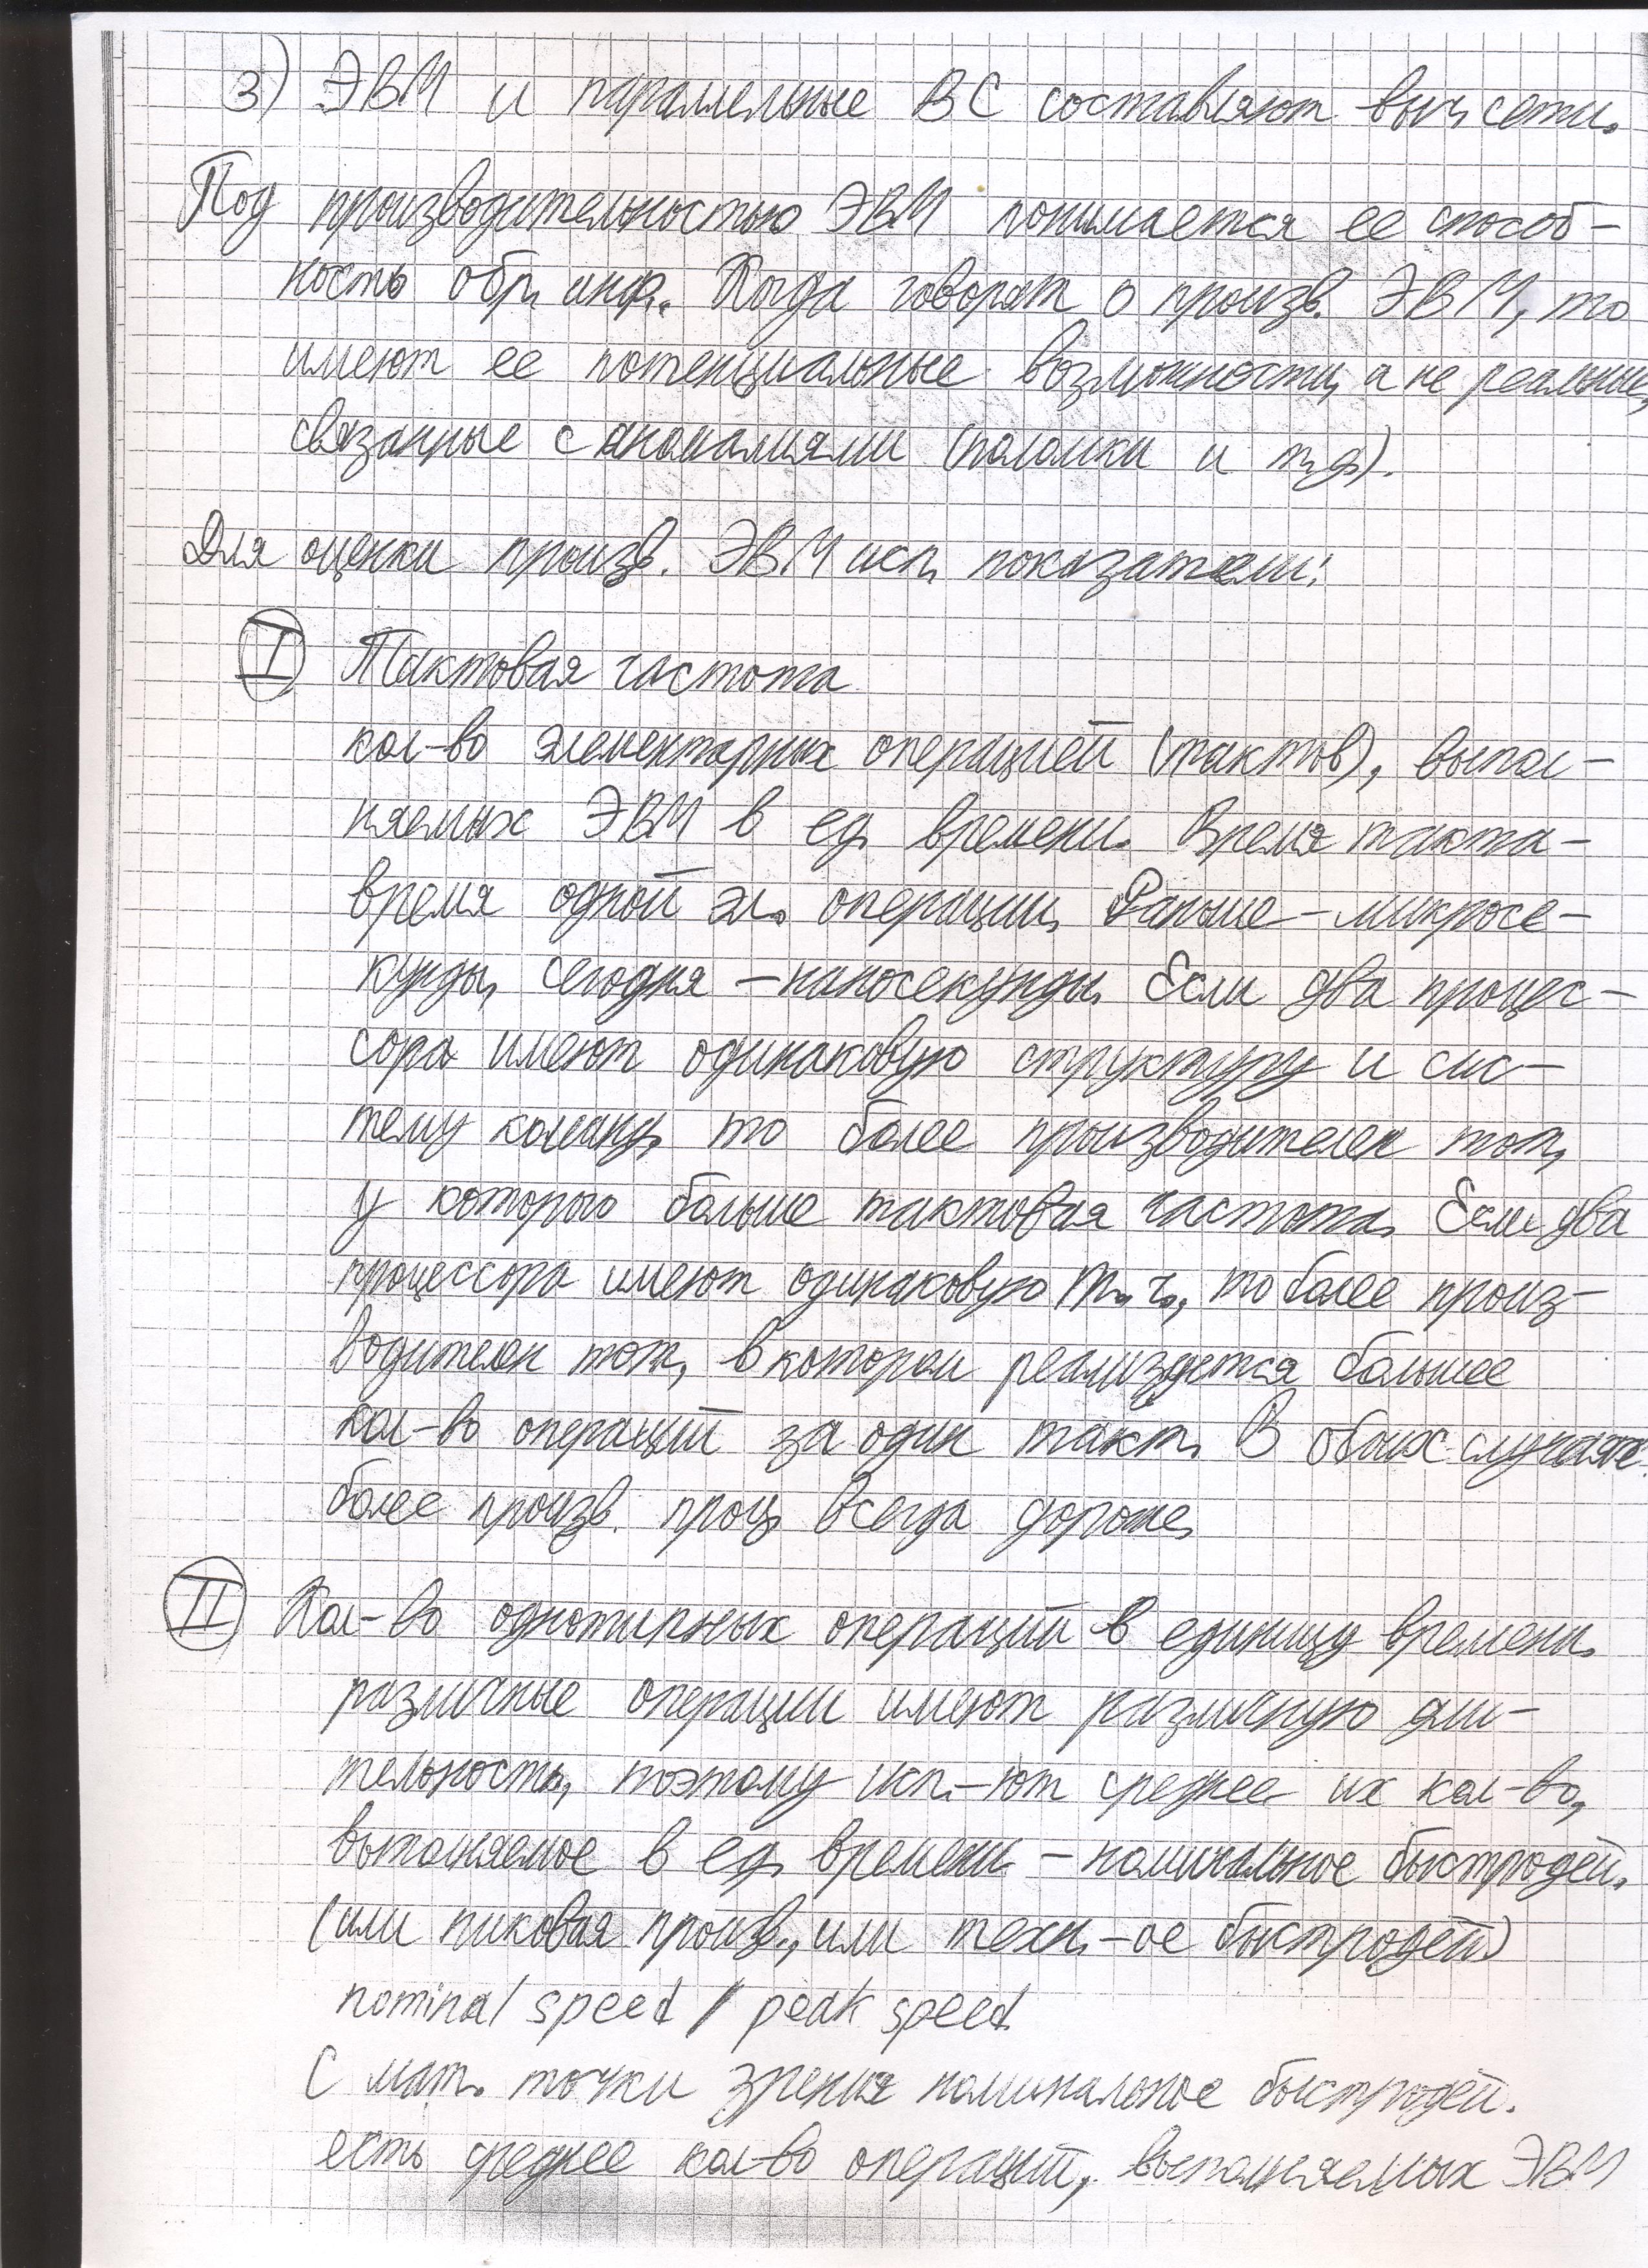 3) ЭВМ и параллельные ВС составляют выч. сети.
Под производительностью ЭВМ понимается ее способ-
ность обр. инф. Когда говорят о произв. ЭВМ, то
имеют ее потенциальные возможности, а не реальные,
связанные с аномалиями (поломки и т.д.).
Для оценки произв. ЭВМ исп. показатели:
I Тактовая частота
кол-во элементарных операцией (тактов), выпол-
няемых ЭВМ в ед. времени. Время такта -
время одной эл. операции. Раньше - микросе-
кунды, сегодня - наносекунды. Если два процес-
сора имеют одинаковую структуру и сис-
тему команд, то более производителен тот,
у которого больше тактовая частота. Если два
процессора имеют одинаковую т.ч., то более произ-
водителен тот, в котором реализуется большее
кол-во операций за один такт. В обоих случаях
более произв. проц. всегда дороже.
II Кол-во однотипных операций в единицу времени.
различные операции имеют различную дли-
тельность, поэтому исп.-ют среднее их кол-во,
выполняемое в ед. времени - номинальное быстродей.
(или пиковая произв., или техн.-ое быстродей)
nominal speed / peak speed.
С мат. точки зрения номинальное быстродей.
есть среднее кол-во операций, выполняемых ЭВМ